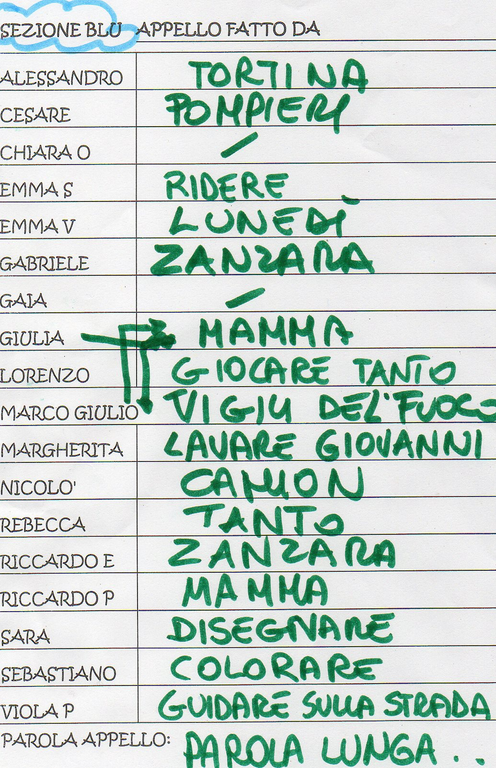 SEZIONE BLU APPELLO FATTO DA
ALESSANDRO TORTINA
CESARE POMPIERI
CHIARA O /
EMMA S RIDERE
EMMA V LUNEDÌ
GABRIELE ZANZARA
GAIA /
GIULIA MAMMA
LORENZO GIOCARE TANTO
MARCO GIULIO VIGILI DEL'FUOCO
MARGHERITA LAVARE GIOVANNI
NICOLO' CAMION
REBECCA TANTO
RICCARDO E ZANZARA
RICCARDO P MAMMA
SARA DISEGNARE
SEBASTIANO COLORARE
VIOLA P GUIDARE SULLA STRADA
PAROLA APPELLO: PAROLA LUNGA ..